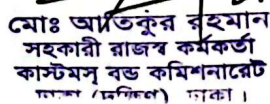 মোঃ আতিকুর রহমান
সহকারী রাজস্ব কর্মকর্তা
কাস্টমস্ বন্ড কমিশনারেট
ঢাকা (দক্ষিণ) ঢাকা।